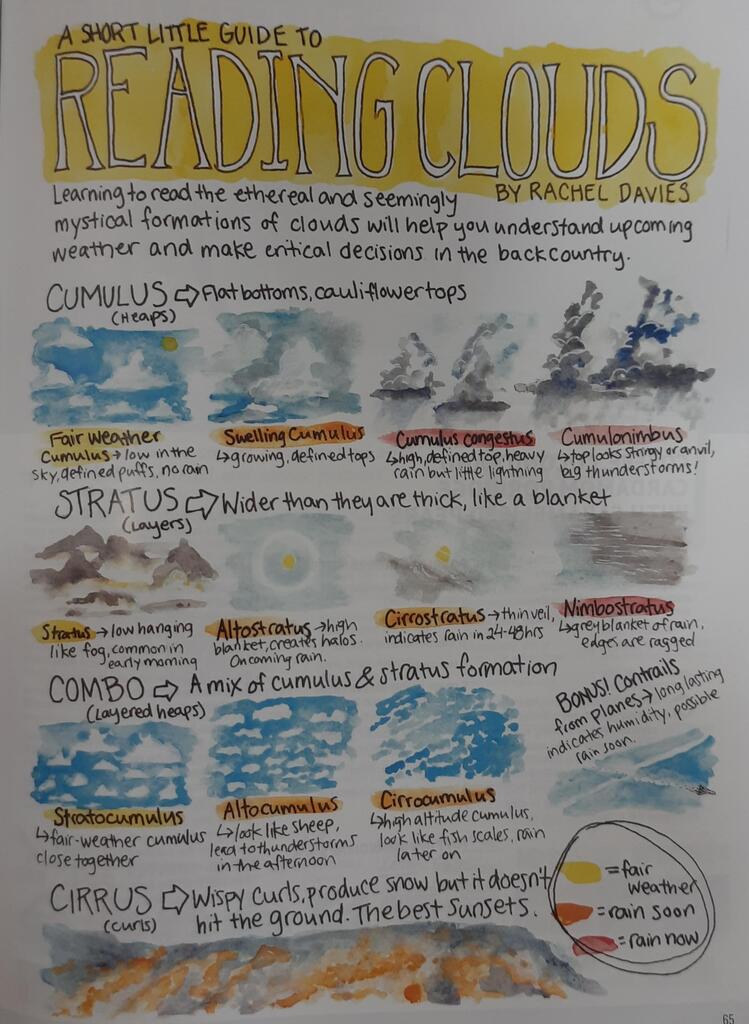 A SHORT LITTLE GUIDE TO
READING CLOUDS
BY RACHEL DAVIES
Learning to read the ethereal and seemingly
mystical formations of clouds will help you understand upcoming
weather and make critical decisions in the backcountry.
CUMULUS → Flat bottoms, cauliflower tops
(HEAPS)
Fair Weather
Cumulus → low in the
sky, defined puffs, no rain
Swelling Cumulus
↳ growing, defined tops
Cumulus congestus
↳ high, defined top, heavy
rain but little lightning
Cumulonimbus
↳ top looks stringy or anvil,
big thunderstorms!
STRATUS → Wider than they are thick, like a blanket
(Layers)
Stratus → low hanging
like fog, common in
early morning
Altostratus → high
blanket, creates halos.
Oncoming rain.
Cirrostratus → thin veil,
indicates rain in 24-48hrs
Nimbostratus
↳ grey blanket of rain,
edges are ragged
COMBO → A mix of cumulus & stratus formation
(Layered heaps)
BONUS! Contrails
from planes → long lasting
indicates humidity, possible
rain soon.
Stratocumulus
↳ fair-weather cumulus
close together
Altocumulus
↳ look like sheep,
lead to thunderstorms
in the afternoon
Cirrocumulus
↳ high altitude cumulus,
look like fish scales, rain
later on
CIRRUS → Wispy curls, produce snow but it doesn't
(curls)
hit the ground. The best sunsets.
= fair
weather
= rain soon
= rain now
65